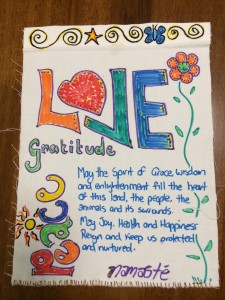 LOVE
Gratitude
Peace
May the Spirit of Grace, wisdom
and enlightenment fill the heart
of this land, the people, the
animals and its surrounds.
May Joy, Health and Happiness
Reign and keep us protected
and nurtured.
namasté